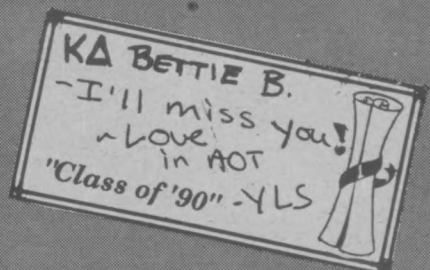 KΔ BETTIE B.
-I'll miss you!
~Love
in AOT
"Class of '90" -YLS